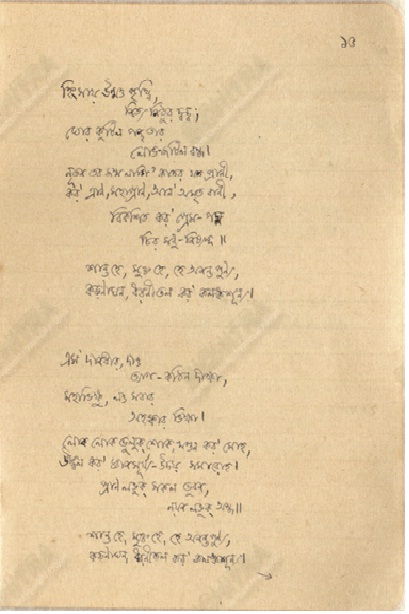 হিংসায় উন্মত্ত পৃথ্বি,
নিত্য নিঠুর দ্বন্দ্ব;
ঘোর কুটিল পন্থ তার
লোভজটিল বন্ধ।
নূতন তব জন্ম লাগি' কাতর যত প্রাণী,
কর' ত্রাণ, মহাপ্রাণ, আন' অমৃত বাণী,
বিকশিত কর' প্রেম-পদ্ম
চির মধু-নিষ্যন্দ॥
শান্ত হে, মুক্ত হে, হে অনন্তপুণ্য,
করুণাঘন, ধরণীতল কর' কলঙ্কশূন্য।
এস দানবীর, দাও
ত্যাগ-কঠিন দীক্ষা,
মহাভিক্ষু, লও সবার
অহঙ্কার ভিক্ষা।
লোক লোক ভুলুক্ শোক, খণ্ডন কর' মোহ,
উজ্জ্বল কর' জ্ঞানসূর্য্য-উদয় সমারোহ।
প্রাণ লভুক্ সকল ভুবন,
নয়ন লভুক্ অন্ধ॥
শান্ত হে, মুক্ত হে, হে অনন্তপুণ্য,
করুণাঘন, ধরণীতল কর' কলঙ্কশূন্য।